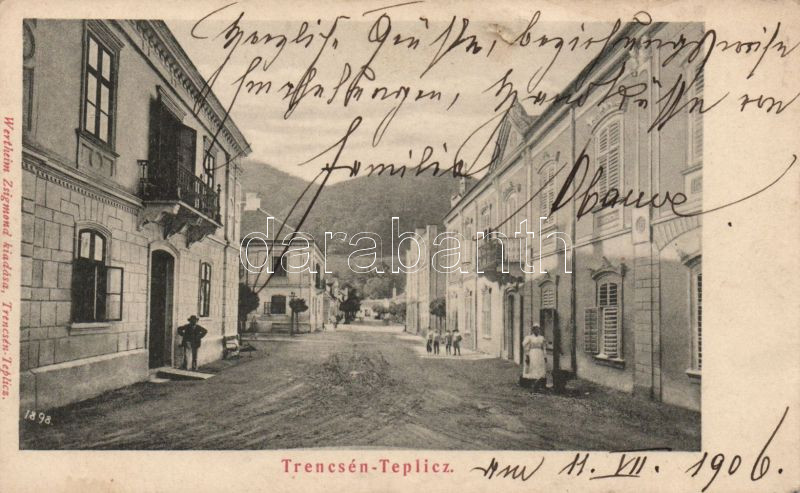 Herzlichste Grüsse, beziehungsweise
Empfehlungen, Handküsse von
Familie
darabanth
Wertheim Zsigmond kiadása, Trencsén-Teplicz.
1898.
Trencsén-Teplicz.
am 11. VII. 1906.